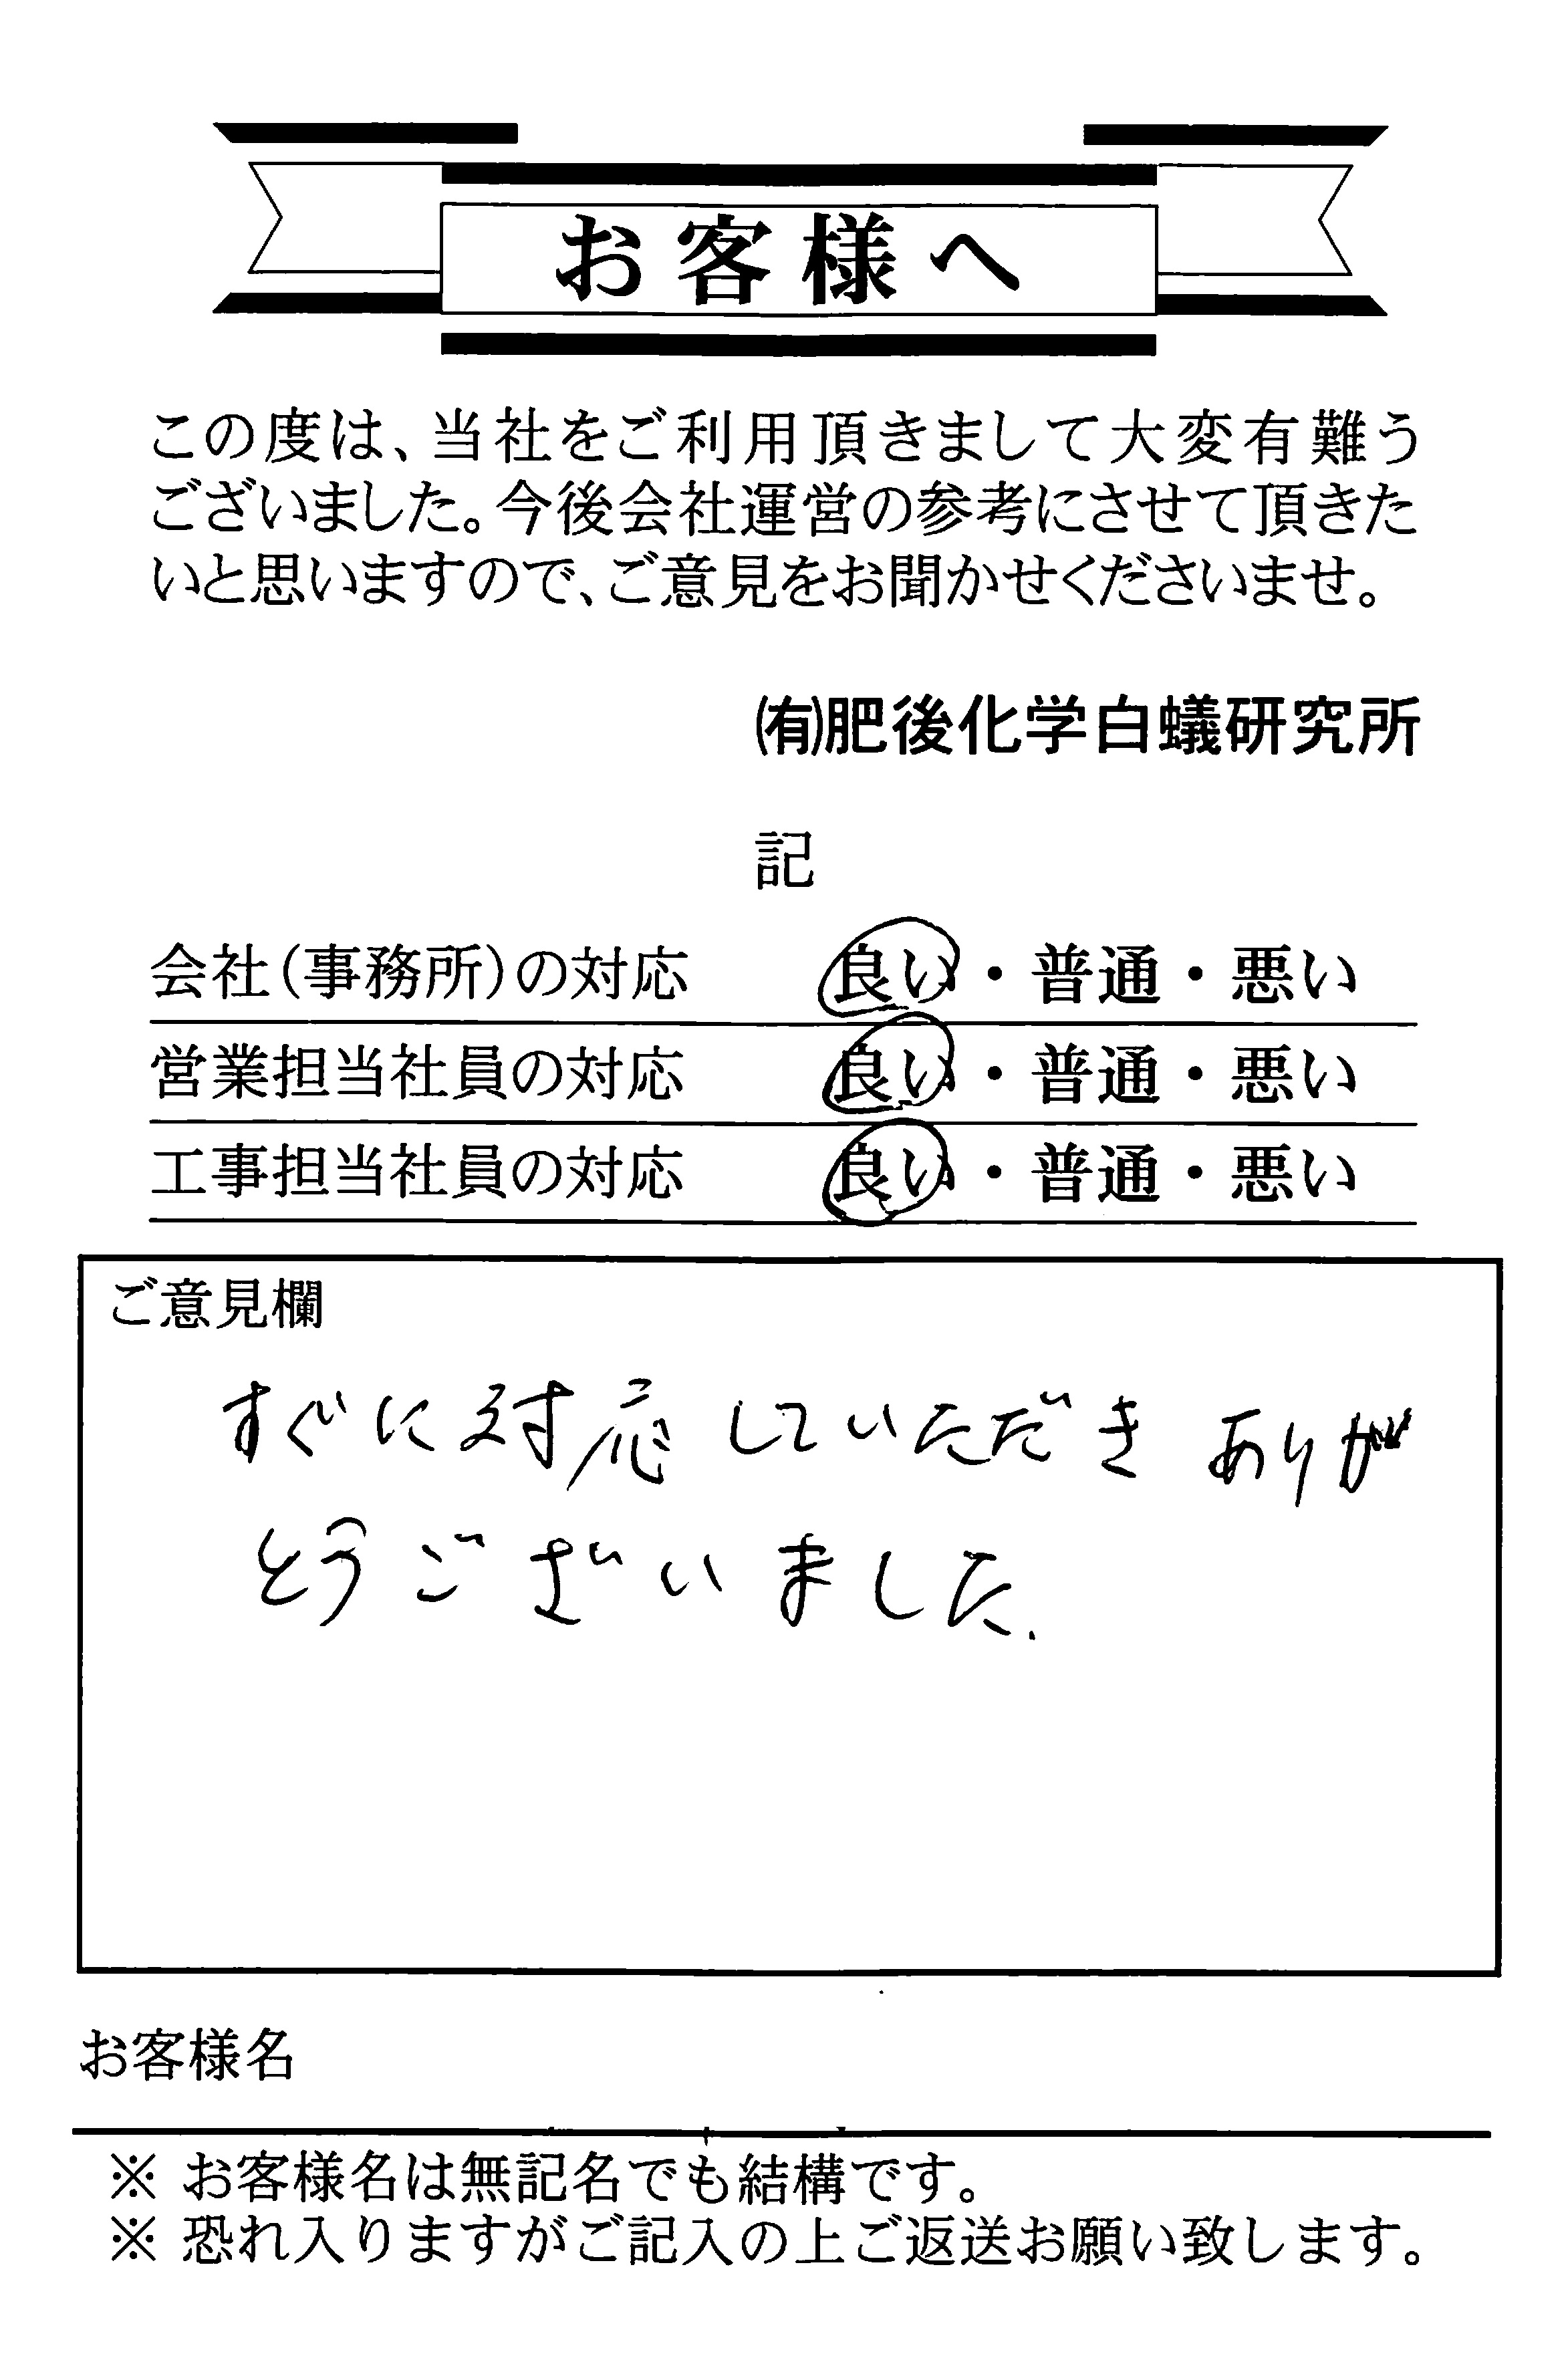 お客様へ
この度は、当社をご利用頂きまして大変有難う
ございました。今後会社運営の参考にさせて頂きた
いと思いますので、ご意見をお聞かせくださいませ。
㈲肥後化学白蟻研究所
記
会社(事務所)の対応 良い・普通・悪い
営業担当社員の対応 良い・普通・悪い
工事担当社員の対応 良い・普通・悪い
ご意見欄
すぐに対応していただきありが
とうございました.
お客様名
※ お客様名は無記名でも結構です。
※ 恐れ入りますがご記入の上ご返送お願い致します。